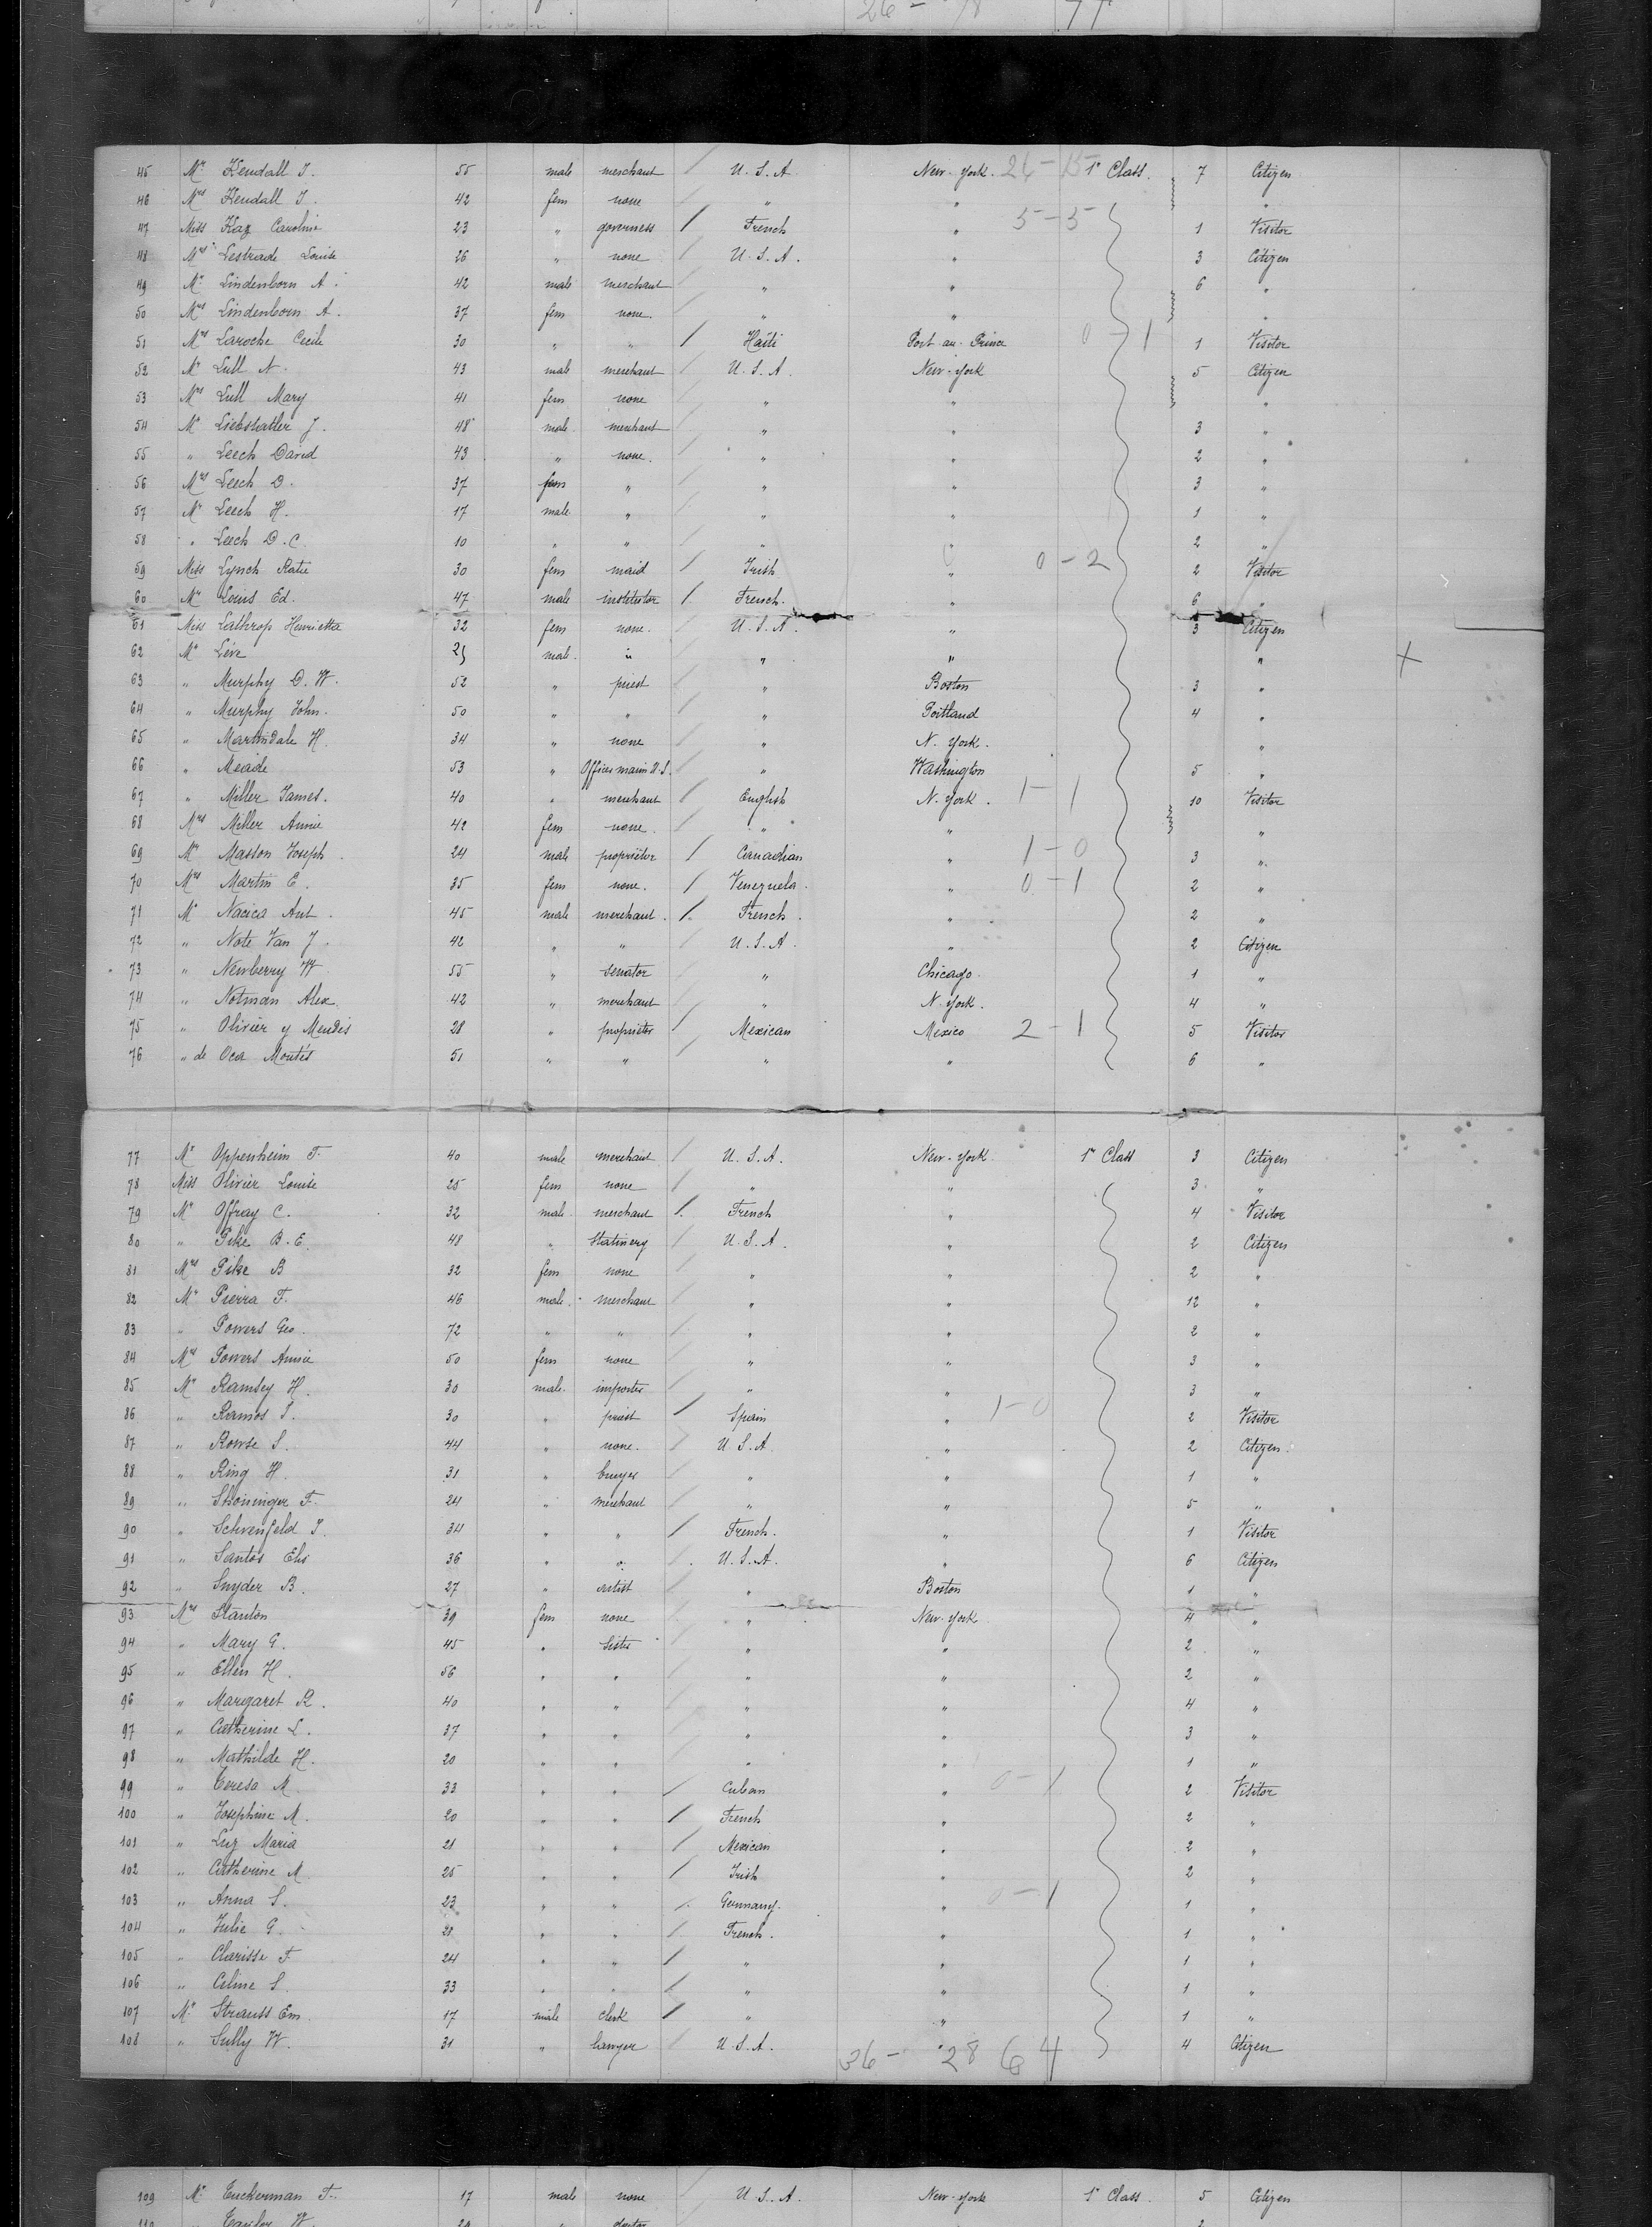 26 - 78 77
45 Mr Kendall J. 55 male merchant / U.S.A. New-york. 26-15 1r Class. 7 Citizen
46 Mrs Kendall J. 42 fem none / " " "
47 Miss Kaz Caroline 23 " governess / French " 5-5 1 Visitor
48 Mrs Lestrade Louise 26 " none / U.S.A. " 3 Citizen
49 Mr Lindenborn A. 42 male merchant / " " 6 "
50 Mrs Lindenborn A. 37 fem none. / " " "
51 Mrs Laroche Cecile 30 " " / Haïti Port-au-Prince 0-1 1 Visitor
52 Mr Lull A. 43 male merchant / U.S.A. New-york 5 Citizen
53 Mrs Lull Mary 41 fem none / " " "
54 Mr J. 48 male merchant / " " 3 "
55 " Leech David 43 " none. / " " 2 "
56 Mrs Leech D. 37 fem " / " " 3 "
57 Mr Leech H. 17 male " / " " 1 "
58 " Leech D.C. 10 " " / " " 2 "
59 Miss Lynch Katie 30 fem maid / Irish " 0-2 2 Visitor
60 Mr Louis Ed. 47 male institutor / French. " 6 "
61 Miss Lathrop Henrietta 32 fem none. / U.S.A. " 3 Citizen
62 Mr male. " / " " " X
63 " Murphy D.W. 52 " priest / " Boston 3 "
64 " Murphy John. 50 " " / " Portland 4 "
65 " Martindale H. 34 " none / " N. York. "
66 " Meade 53 " Officer marin U.S. / " Washington 5 "
67 " Miller James. 40 " merchant / English N. york. 1-1 10 Visitor
68 Mrs Miller Annie 42 fem none. / " " "
69 Mr Masson Joseph. 24 male propriétor / Canadian " 1-0 3 "
70 Mrs Martin E. 35 fem none. / Venezuela. " 0-1 2 "
71 Mr Nacica Ant. 45 male merchant. / French. " 2 "
72 " Note Van J. 42 " " / U.S.A. " 2 Citizen
73 " Newberry W 55 " senator / " Chicago. 1 "
74 " Notman Alex 42 " merchant / " N. york. 4 "
75 " Olivier y Mendés 28 " propriétor / Mexican Mexico 2-1 5 Visitor
76 " de Oca Montés 51 " " / " " 6 "
77 Mr Oppenheim F. 40 male merchant / U.S.A. New-york 1r Class 3 Citizen
78 Miss Olivier Louise 25 fem none / " " 3 "
79 Mr Offray C. 32 male merchant / French " 4 Visitor
80 " Pike B.E. 48 " Statinery / U.S.A. " 2 Citizen
81 Mrs Pike B 32 fem none / " " 2 "
82 Mr Pierra F. 46 male. merchant / " " 12 "
83 " Powers Geo. 72 " " / " " 2 "
84 Mrs Powers Annie 50 fem none / " " 3 "
85 Mr Ramsey H. 30 male. importer / " " 3 "
86 " Ramos J. 30 " priest / Spain " 1-0 2 Visitor
87 " Rowse S. 44 " none. / U.S.A. " 2 Citizen.
88 " Ring H. 31 " buyer / " " 1 "
89 " Shoninger F. 24 " merchant / " " 5 "
90 " J. 34 " " / French. " 1 Visitor
91 " Santos Eli 36 " " / U.S.A. " 6 Citizen
92 " Snyder B. 27 " artist / " Boston 1 "
93 Mrs Stanton 39 fem none / " New-york 4 "
94 " Mary G. 45 " Sister / " " 2 "
95 " Ellen H. 56 " " / " " 2 "
96 " Margaret R. 40 " " / " " 4 "
97 " Catherine L. 37 " " / " " 3 "
98 " Mathilde H. 20 " " / " " 1 "
99 " Teresa M 33 " " / Cuban " 0-1 2 Visitor
100 " Josephine M. 20 " " / French " 2 "
101 " Luz Maria 21 " " / Mexican " 2 "
102 " Catherine M. 25 " " / Irish " 2 "
103 " Anna S. 23 " " / Germany. " 0-1 1 "
104 " Julie G. 28 " " / French. " 1 "
105 " Clarisse F. 24 " " / " " 1 "
106 " Celine S. 33 " " / " " 1 "
107 Mr Strauss Em. 17 male clerk / " " 1 "
108 " Sully W. 31 " lawyer / U.S.A. " 4 Citizen
36 - 28 64
109 Mr Tuckerman F. 17 male none U.S.A. New-york 1r Class. 5 Citizen
110 " W. 29 doctor 2